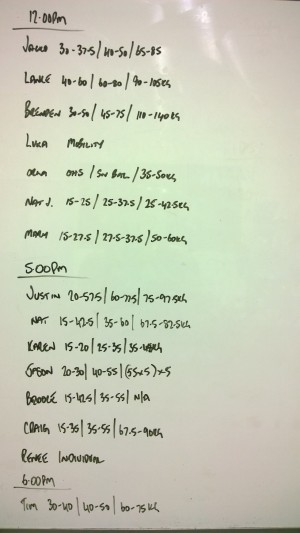 12:00PM
JACKO 30-37.5 / 40-50 / 65-85
LANCE 40-60 / 60-80 / 90-105KG
BRENDEN 30-50 / 45-75 / 110-140KG
LUKA MOBILITY
ORLA OHS / SN BAL / 35-50KG
NAT J. 15-25 / 25-37.5 / 25-42.5KG
MARK 15-27.5 / 27.5-37.5 / 50-60KG
5:00PM
JUSTIN 20-57.5 / 60-77.5 / 75-97.5KG
NAT 15-42.5 / 35-60 / 67.5-82.5KG
KAREN 15-20 / 25-35 / 35-45KG
20-30 / 40-55 / (55x5)x5
BROOKE 15-42.5 / 35-55 / N/A
CRAIG 15-35 / 35-55 / 67.5-90KG
RENEE INDIVIDUAL
6:00PM
TIM 30-40 / 40-50 / 60-75KG